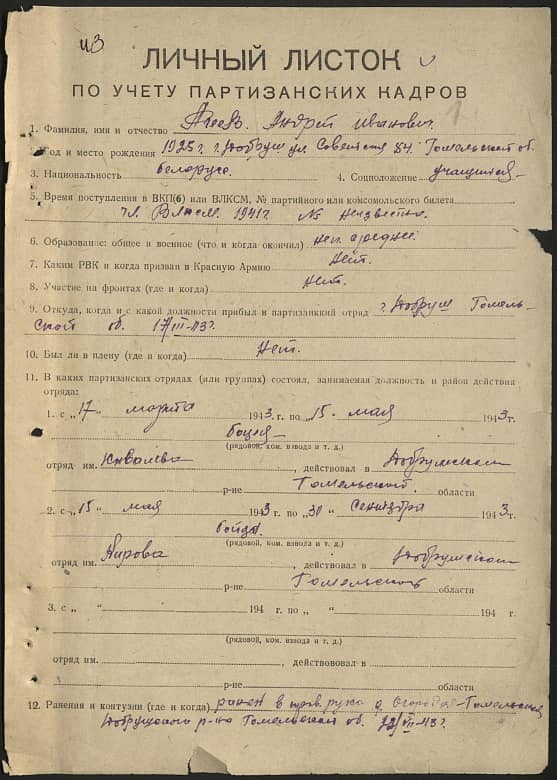 из
ЛИЧНЫЙ ЛИСТОК
ПО УЧЕТУ ПАРТИЗАНСКИХ КАДРОВ
1
1. Фамилия, имя и отчество Агеев Андрей Иванович.
2. Год и место рождения 1925 г. г. Добруш ул. Советская 84 Гомельской об.
3. Национальность белорус. 4. Соцположение учащийся
5. Время поступления в ВКП(б) или ВЛКСМ, № партийного или комсомольского билета
чл. Влксм. 1941 г. № неизвестно.
6. Образование: общее и военное (что и когда окончил) неп. среднее.
7. Каким РВК и когда призван в Красную Армию Нет.
8. Участие на фронтах (где и когда) Нет.
9. Откуда, когда и с какой должности прибыл в партизанский отряд г. Добруш Гомель-
ской об. 17/III-43 г.
10. Был ли в плену (где и когда) Нет.
11. В каких партизанских отрядах (или группах) состоял, занимаемая должность и район действия
отряда:
1. с „17“ марта 1943 г. по „15. мая 1943 г.
бойца
(рядовой, ком. взвода и т. д.)
отряд им. Ковалева, действовал в Добрушском
р-не Гомельской. области
2. с „15“ мая 1943 г. по „30“ Сентября 1943 г.
бойца.
(рядовой, ком. взвода и т. д.)
отряд им. Кирова, действовал в Добрушском
р-не Гомельской области
3. с „ “ 194 г. по „ “ 194 г.
(рядовой, ком. взвода и т. д.)
отряд им. , действововал в
р-не области
12. Ранения и контузии (где и когда) ранен в прав. руку д. Гомельская
Добрушского р-на Гомельской об. 43 г.